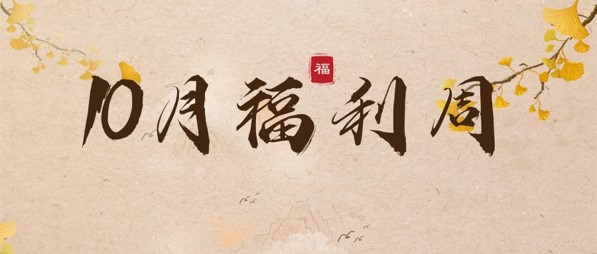 福
10月福利周